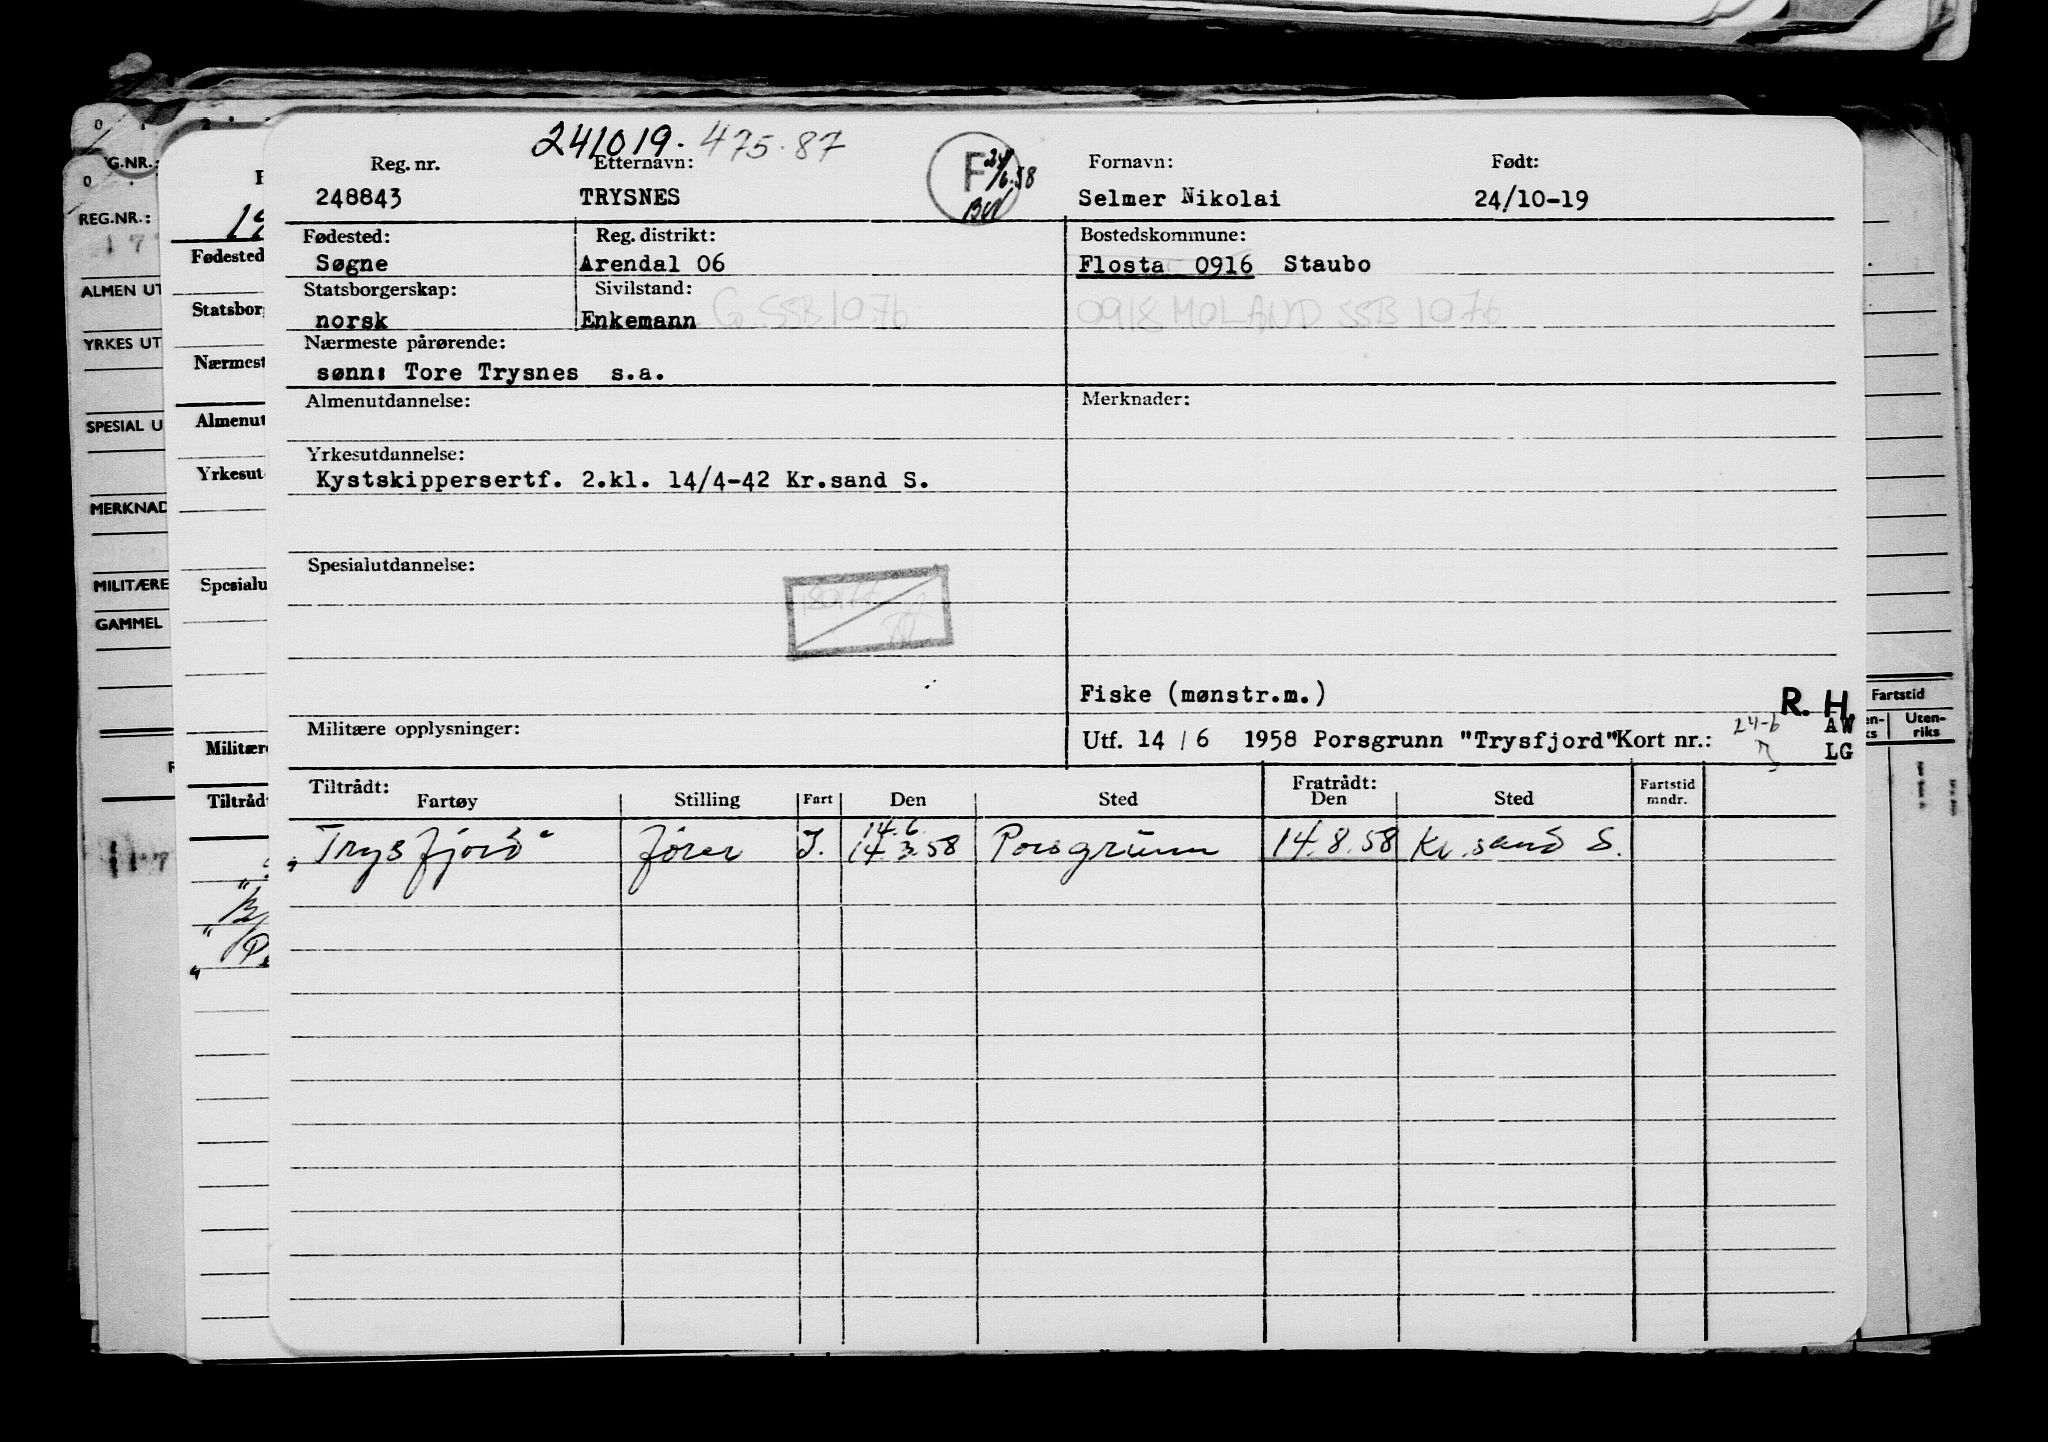 241019. 475.87
Reg. nr. Etternavn: Fornavn: Født:
F 24/6.58
248843 TRYSNES Selmer Nikolai 24/10-19
Fødested: Reg. distrikt: Bostedskommune:
Søgne Arendal 06 Flosta 0916 Staubo
Statsborgerskap: Sivilstand:
norsk Enkemann G SSB 1076 0918 MOLAND SSB 1076
Nærmeste pårørende:
sønn: Tore Trysnes s.a.
Almenutdannelse: Merknader:
Yrkesutdannelse:
Kystskippersertf. 2.kl. 14/4-42 Kr.sand S.
Spesialutdannelse:
Fiske (mønstr.m.)
R. H.
Militære opplysninger:
Utf. 14 / 6 1958 Porsgrunn "Trysfjord" Kort nr.: 24-6 AW
LG
Tiltrådt: Fratrådt:
Fartøy Stilling Fart Den Sted Den Sted Fartstid mndr.
14.6.
"Trysfjord" fører J. 14.3.58 Porsgrunn 14.8.58 Kr.sand S.
G.NR.:
REG.NR.:
ALMEN UT
YRKES UT
SPESIAL U
MERKNAD
MILITÆRE
GAMMEL
Fødested
Statsborg
Nærmest
Almenut
Yrkesut
Spesialu
Militære
Tiltrådt
Fartstid
Uten-
riks